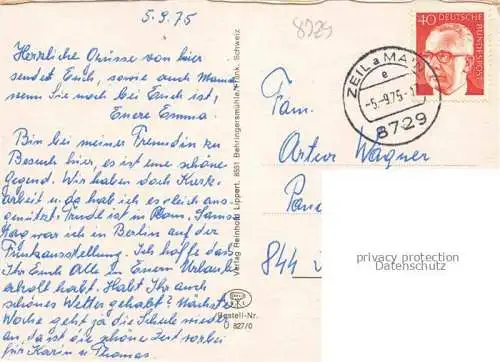 5.9.75
Herzliche Grüsse von hier
sendet Euch, sowie auch Mama
wenn Sie noch bei Euch ist,
Euere Emma.
Bin bei meiner Freundin zu
Besuch hier, es ist eine schöne
Gegend. Wir haben doch Kurz-
arbeit u da hab ich es gleich aus-
genützt. Trudl ist in Rom. Sams-
tag war ich in Berlin auf der
Funkausstellung. Ich hoffe das
Ihr Euch Alle in Euern Urlaub
erholt habt. Habt Ihr auch
schönes Wetter gehabt? Nächste
Woche geht ja die Schule wieder
an, da ist die schöne Zeit vorbei
für Karin u Thomas.
Verlag Reinhold Lippert, 8551 Behringersmühle/Fränk. Schweiz
Bestell-Nr.
D 827/0
8729
40 DEUTSCHE BUNDESPOST
ZEIL a MAIN
e
-5.-9.75-1
8729
Fam.
Artur Wagner
844
privacy protection
Datenschutz